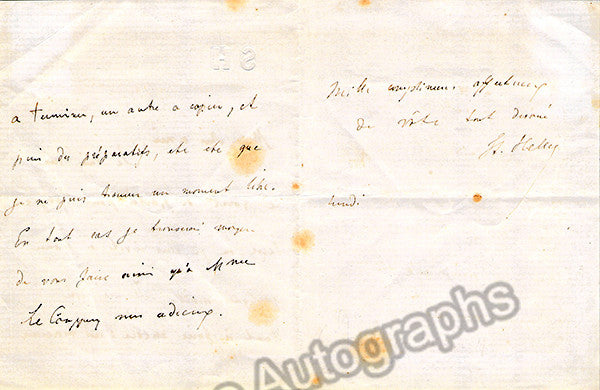 SH
a terminer, un autre a copier, et
puis des préparatifs, etc etc que
je ne puis trouver un moment libre.
En tout cas je trouverai moyen
de vous faire ainsi qu'à Mme
Le Couppey mes adieux.
Mille complimens affectueux
de vôtre tout dévoué
St. Heller
lundi
Autographs